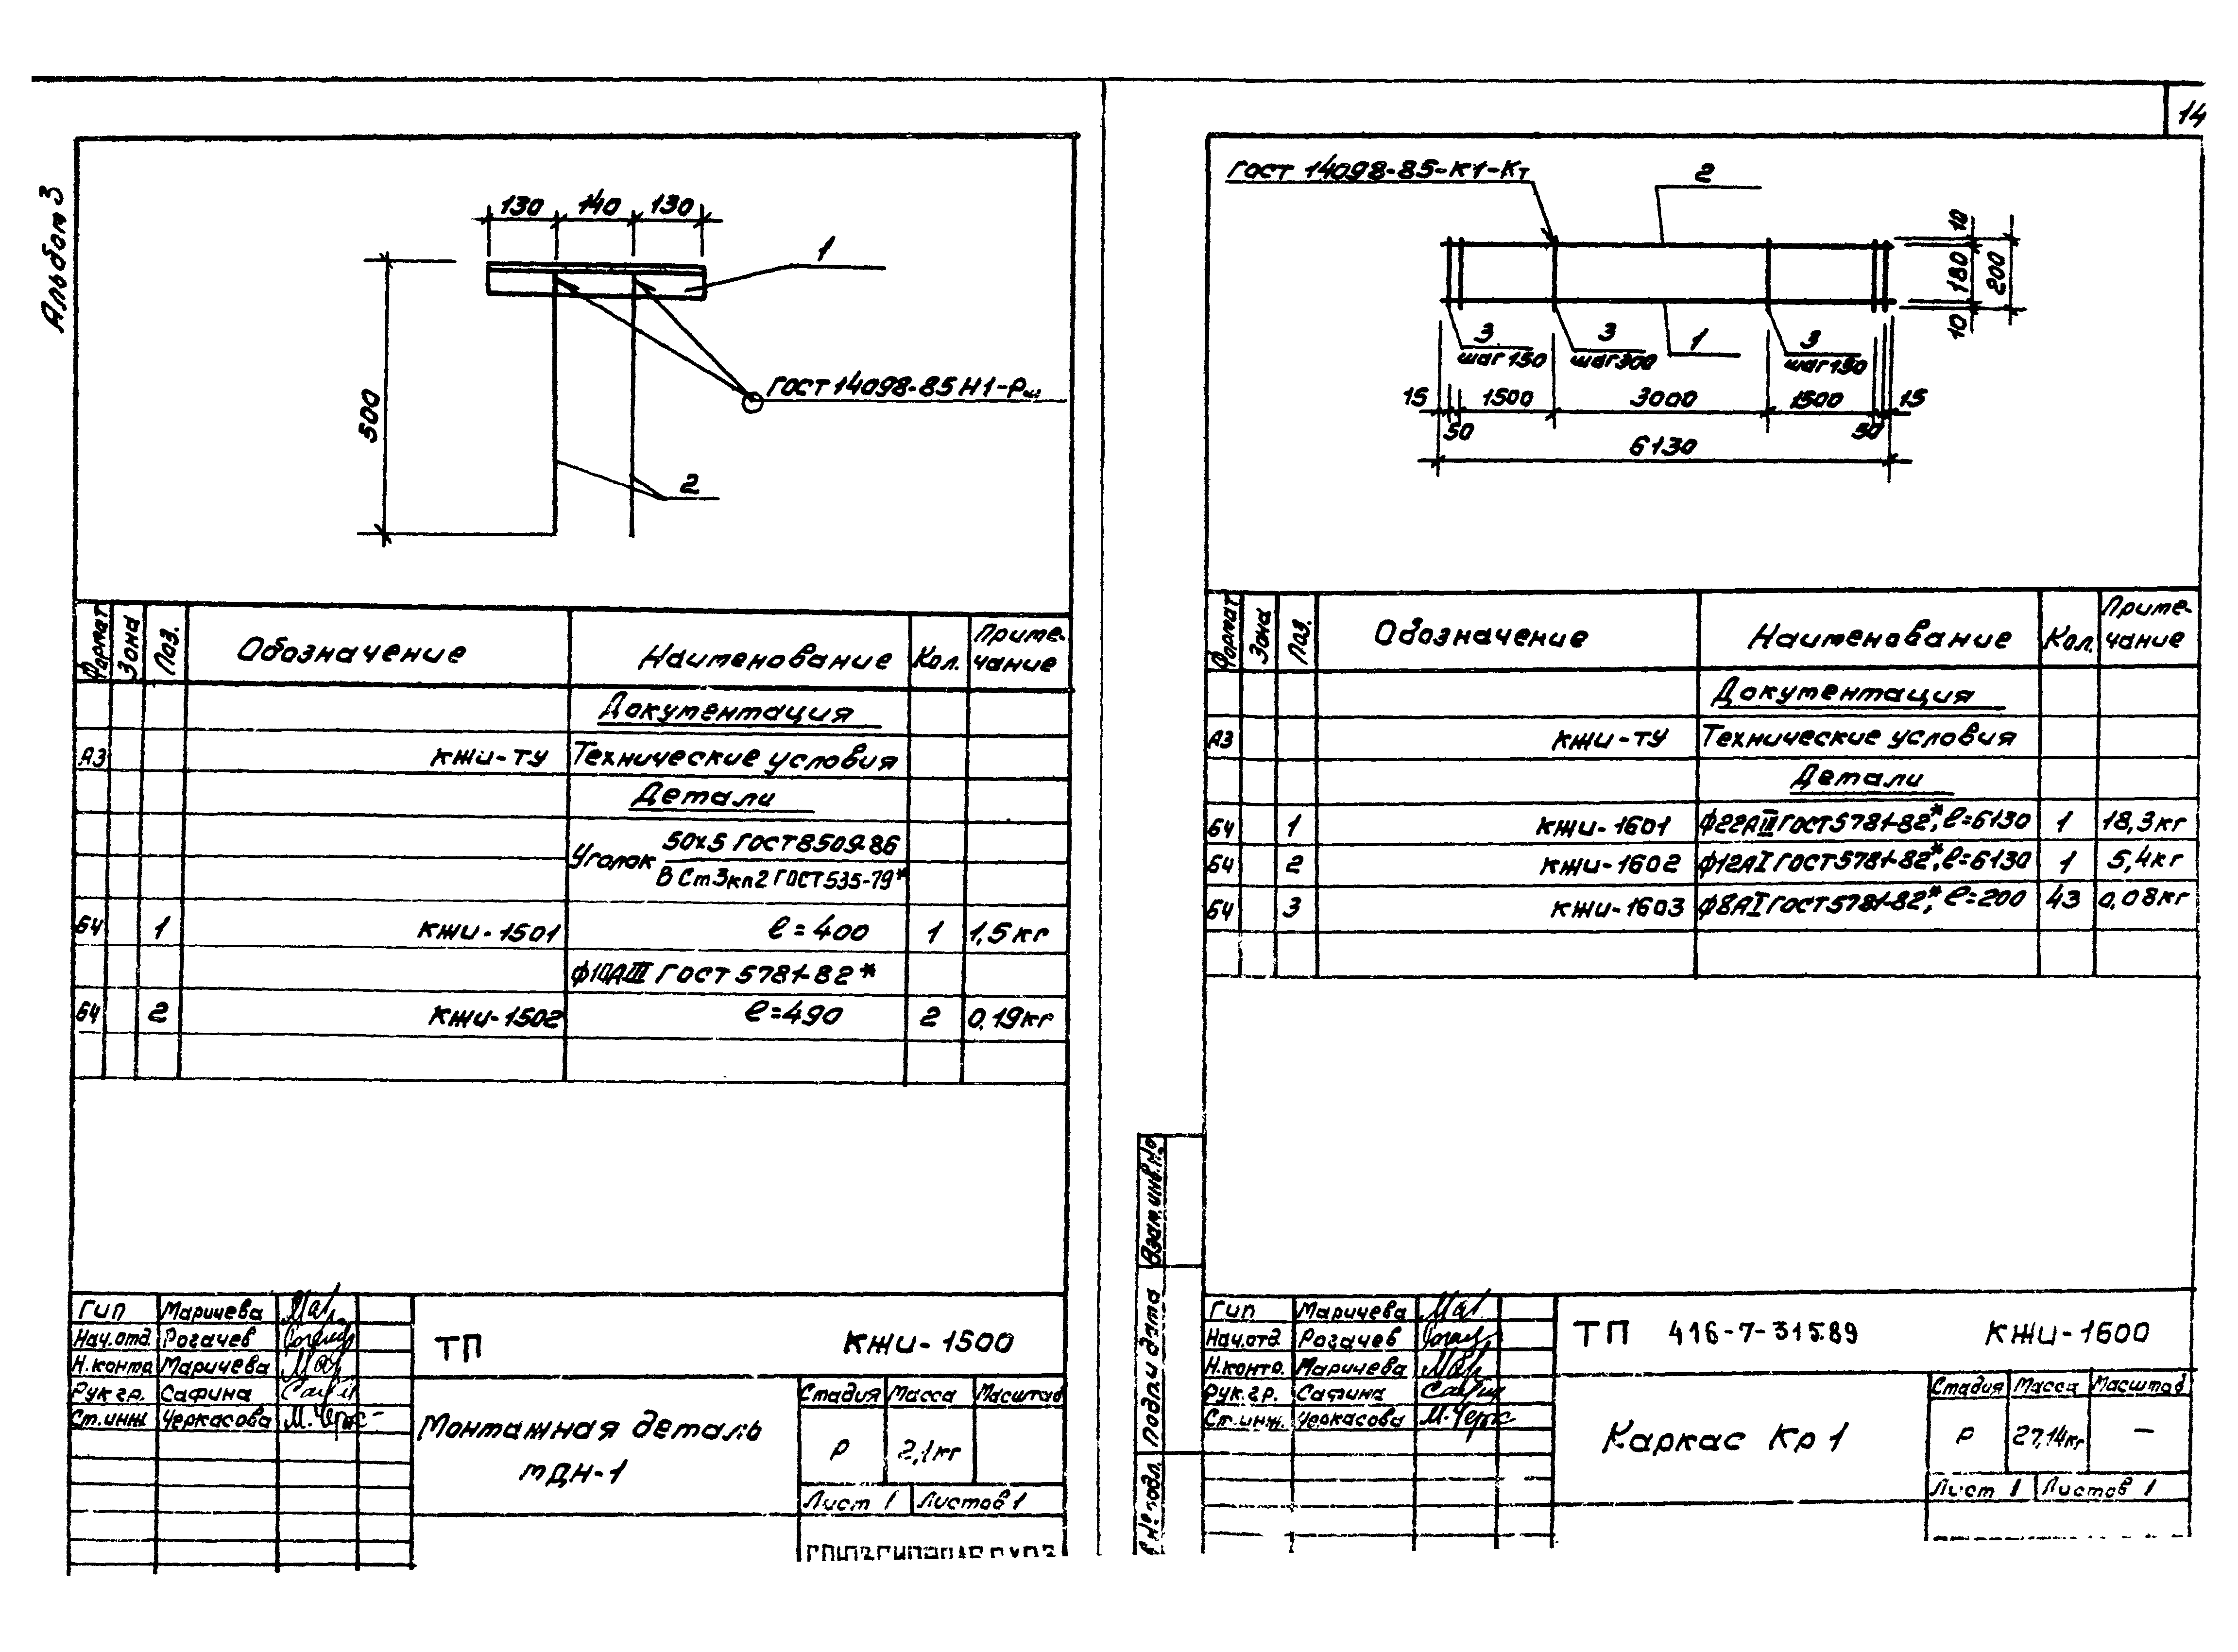 14
Альбом 3
130 140 130
1
500
ГОСТ 14098-85 Н1-Рш
2
Формат Зона Поз. Обозначение Наименование Кол. Приме-
чание
Документация
А3 КЖИ-ТУ Технические условия
Детали
Уголок 50х5 ГОСТ 8509-86
В Ст3кп2 ГОСТ 535-79*
БЧ 1 КЖИ-1501 ℓ=400 1 1,5кг
ф10АIII ГОСТ 5781-82*
БЧ 2 КЖИ-1502 ℓ=490 2 0,19кг
ГИП Маричева
Нач.отд. Рогачев
Н.контр. Маричева
Рук.гр. Сафина
Ст.инж. Черкасова М.Черк
ТП КЖИ-1500
Монтажная деталь
МДН-1
Стадия Масса Масштаб
Р 2,1кг
Лист 1 Листов 1
ГОСТ 14098-85-К1-Кт
2
10
180 200
10
3 3 1 3
шаг 150 шаг 300 шаг 150
15 1500 3000 1500 15
50 50
6130
Формат Зона Поз. Обозначение Наименование Кол. Приме-
чание
Документация
А3 КЖИ-ТУ Технические условия
Детали
БЧ 1 КЖИ-1601 ф22АIII ГОСТ 5781-82*, ℓ=6130 1 18,3кг
БЧ 2 КЖИ-1602 ф12АI ГОСТ 5781-82*, ℓ=6130 1 5,4кг
БЧ 3 КЖИ-1603 ф8АI ГОСТ 5781-82*, ℓ=200 43 0,08кг
Взам.инв.№
Подп. и дата
№ подл.
ГИП Маричева
Нач.отд. Рогачев
Н.контр. Маричева
Рук.гр. Сафина
Ст.инж. Черкасова М.Черк
ТП 416-7-315.89 КЖИ-1600
Каркас Кр1
Стадия Масса Масштаб
Р 27,14кг —
Лист 1 Листов 1